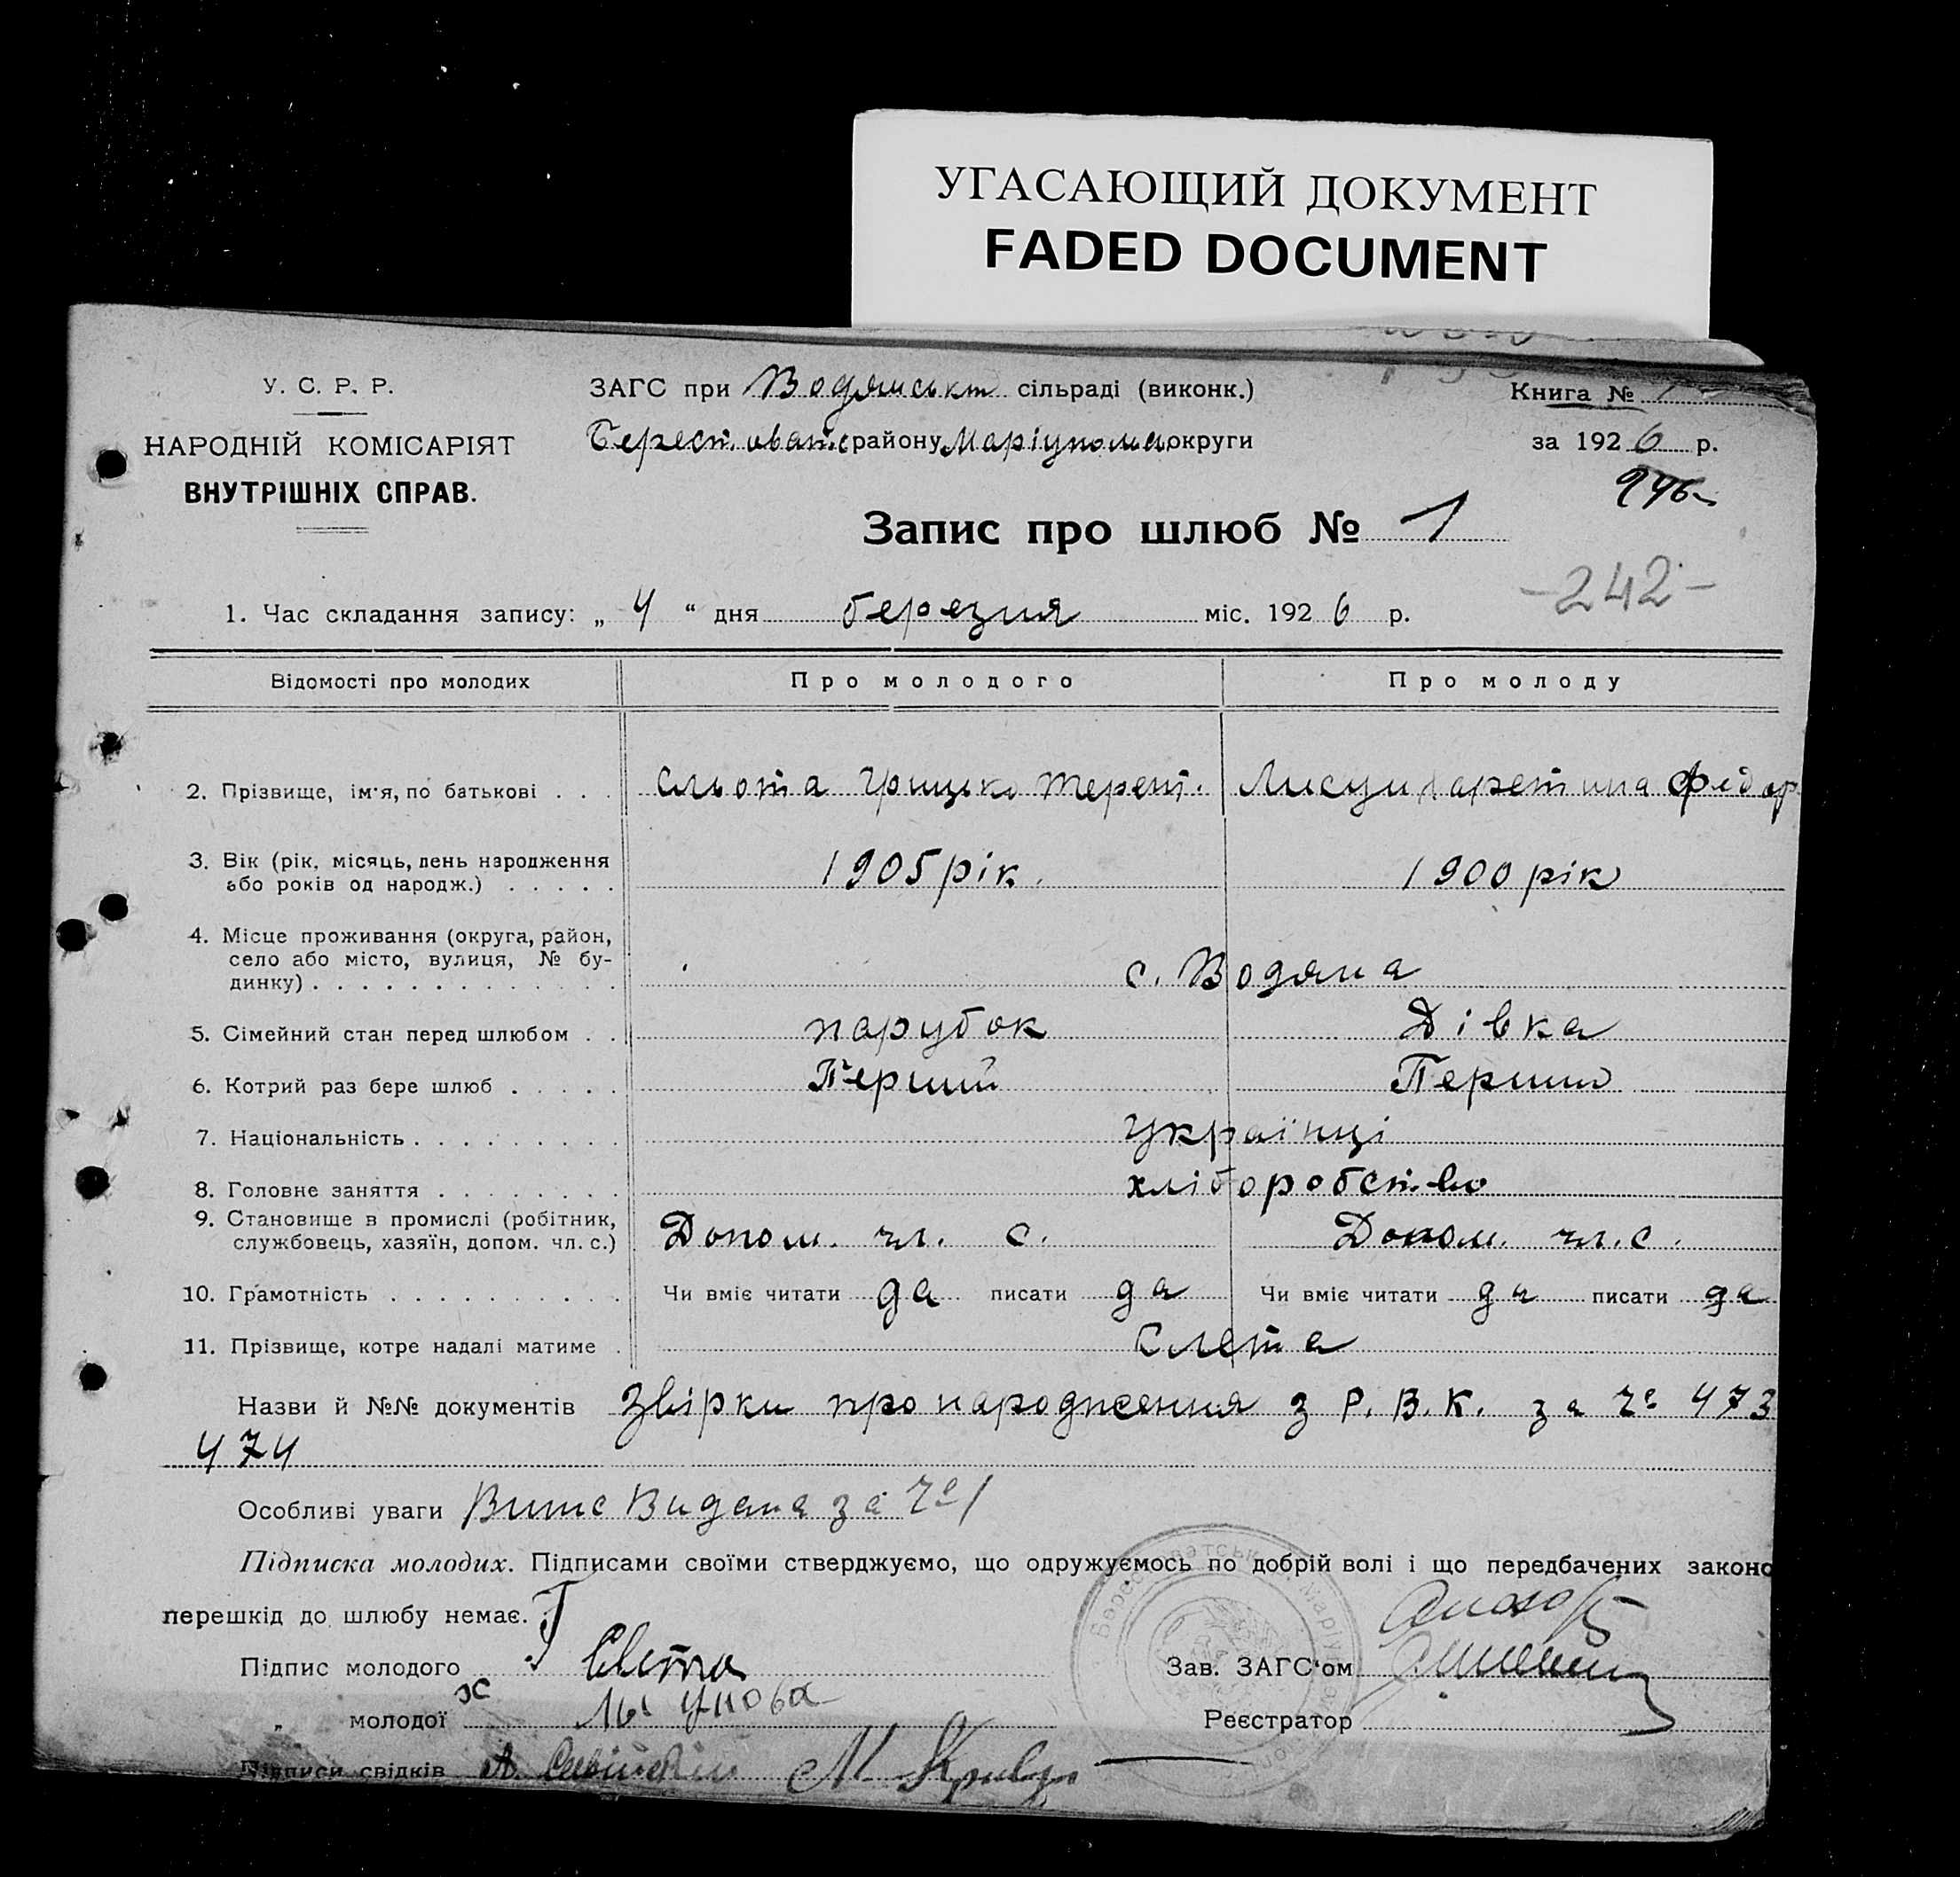 УГАСАЮЩИЙ ДОКУМЕНТ
FADED DOCUMENT
У. С. Р. Р.
НАРОДНІЙ КОМІСАРІЯТ
ВНУТРІШНІХ СПРАВ.
ЗАГС при Водянськ сільраді (виконк.)
району Маріупол округи
Книга № 1
за 1926 р.
946
Запис про шлюб № 1
-242-
1. Час складання запису: „ 4 “ дня березня міс. 1926 р.
Відомості про молодих Про молодого Про молоду
2. Прізвище, ім'я, по батькові . . . Сльота Грицько Терент. Федор
3. Вік (рік, місяць, день народження
або років од народж.) . . . . . 1905 рік. 1900 рік
4. Місце проживання (округа, район,
село або місто, вулиця, № бу-
динку) . . . . . . . . . . . . . с. Водяна
5. Сімейний стан перед шлюбом . . парубок Дівка
6. Котрий раз бере шлюб . . . . . Перший Перший
7. Національність . . . . . . . . . Українці
8. Головне заняття . . . . . . . . хліборобство
9. Становище в промислі (робітник,
службовець, хазяїн, допом. чл. с.) Допом. чл. с. Допом. чл. с.
10. Грамотність . . . . . . . . . . Чи вміє читати да писати да Чи вміє читати да писати да
11. Прізвище, котре надалі матиме . Слета
Назви й №№ документів Звірки про народження з Р. В. К. за Че 473
474
Особливі уваги Видана за Че 1
Підписка молодих. Підписами своїми стверджуємо, що одружуємось по добрій волі і що передбачених законо
перешкід до шлюбу немає.
Підпис молодого Слета
Зав. ЗАГС'ом
„ молодої
Реєстратор
Підписи свідків